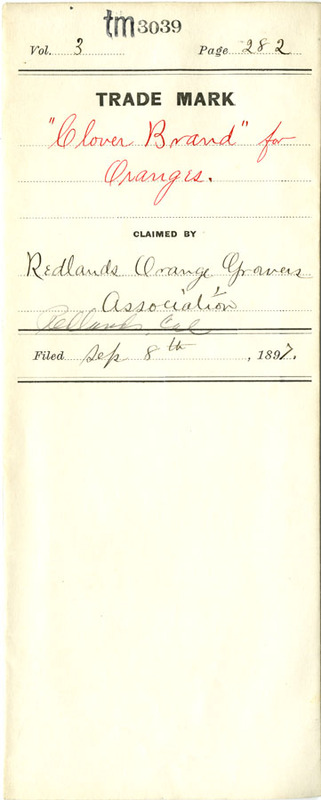 tm3039
Vol. 3 Page 282
TRADE MARK
"Clover Brand" for
Oranges.
CLAIMED BY
Redlands Orange Growers
Association
Redlands, Cal
Filed Sep 8th, 1897.